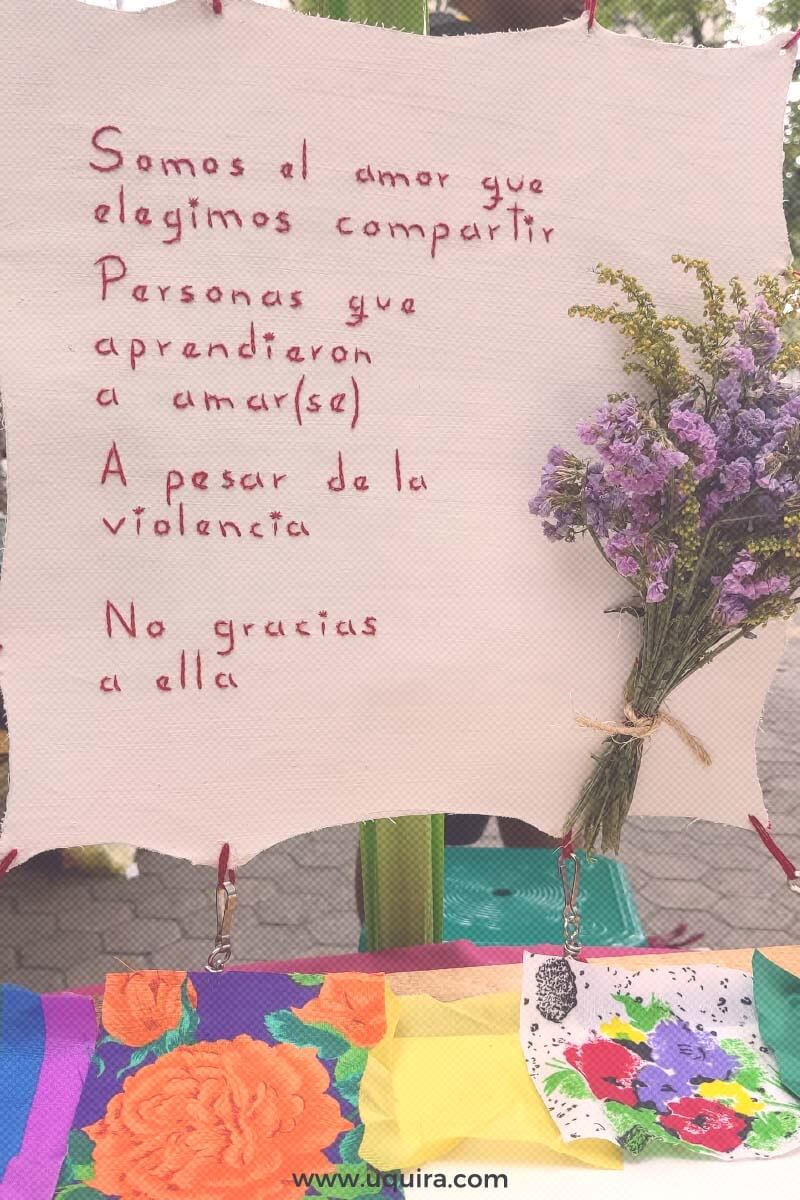 Somos el amor que
elegimos compartir
Personas que
aprendieron
a amar(se)
A pesar de la
violencia
No gracias
a ella
www.uquira.com